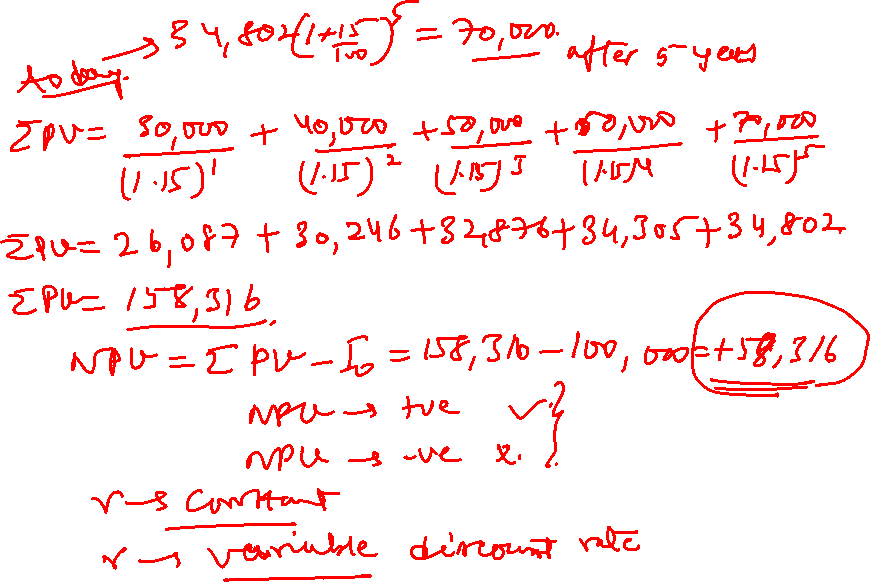 today → 34,802(1+15/100)^5 = 70,000. after 5 years
ΣPV = 30,000/(1.15)^1 + 40,000/(1.15)^2 + 50,000/(1.15)^3 + 60,000/(1.15)^4 + 70,000/(1.15)^5
ΣPV = 26,087 + 30,246 + 32,876 + 34,305 + 34,802
ΣPV = 158,316.
NPV = ΣPV - I₀ = 158,316 - 100,000 = +58,316
NPV → +ve ✓
NPV → -ve x.
r → constant
r → variable discount rate